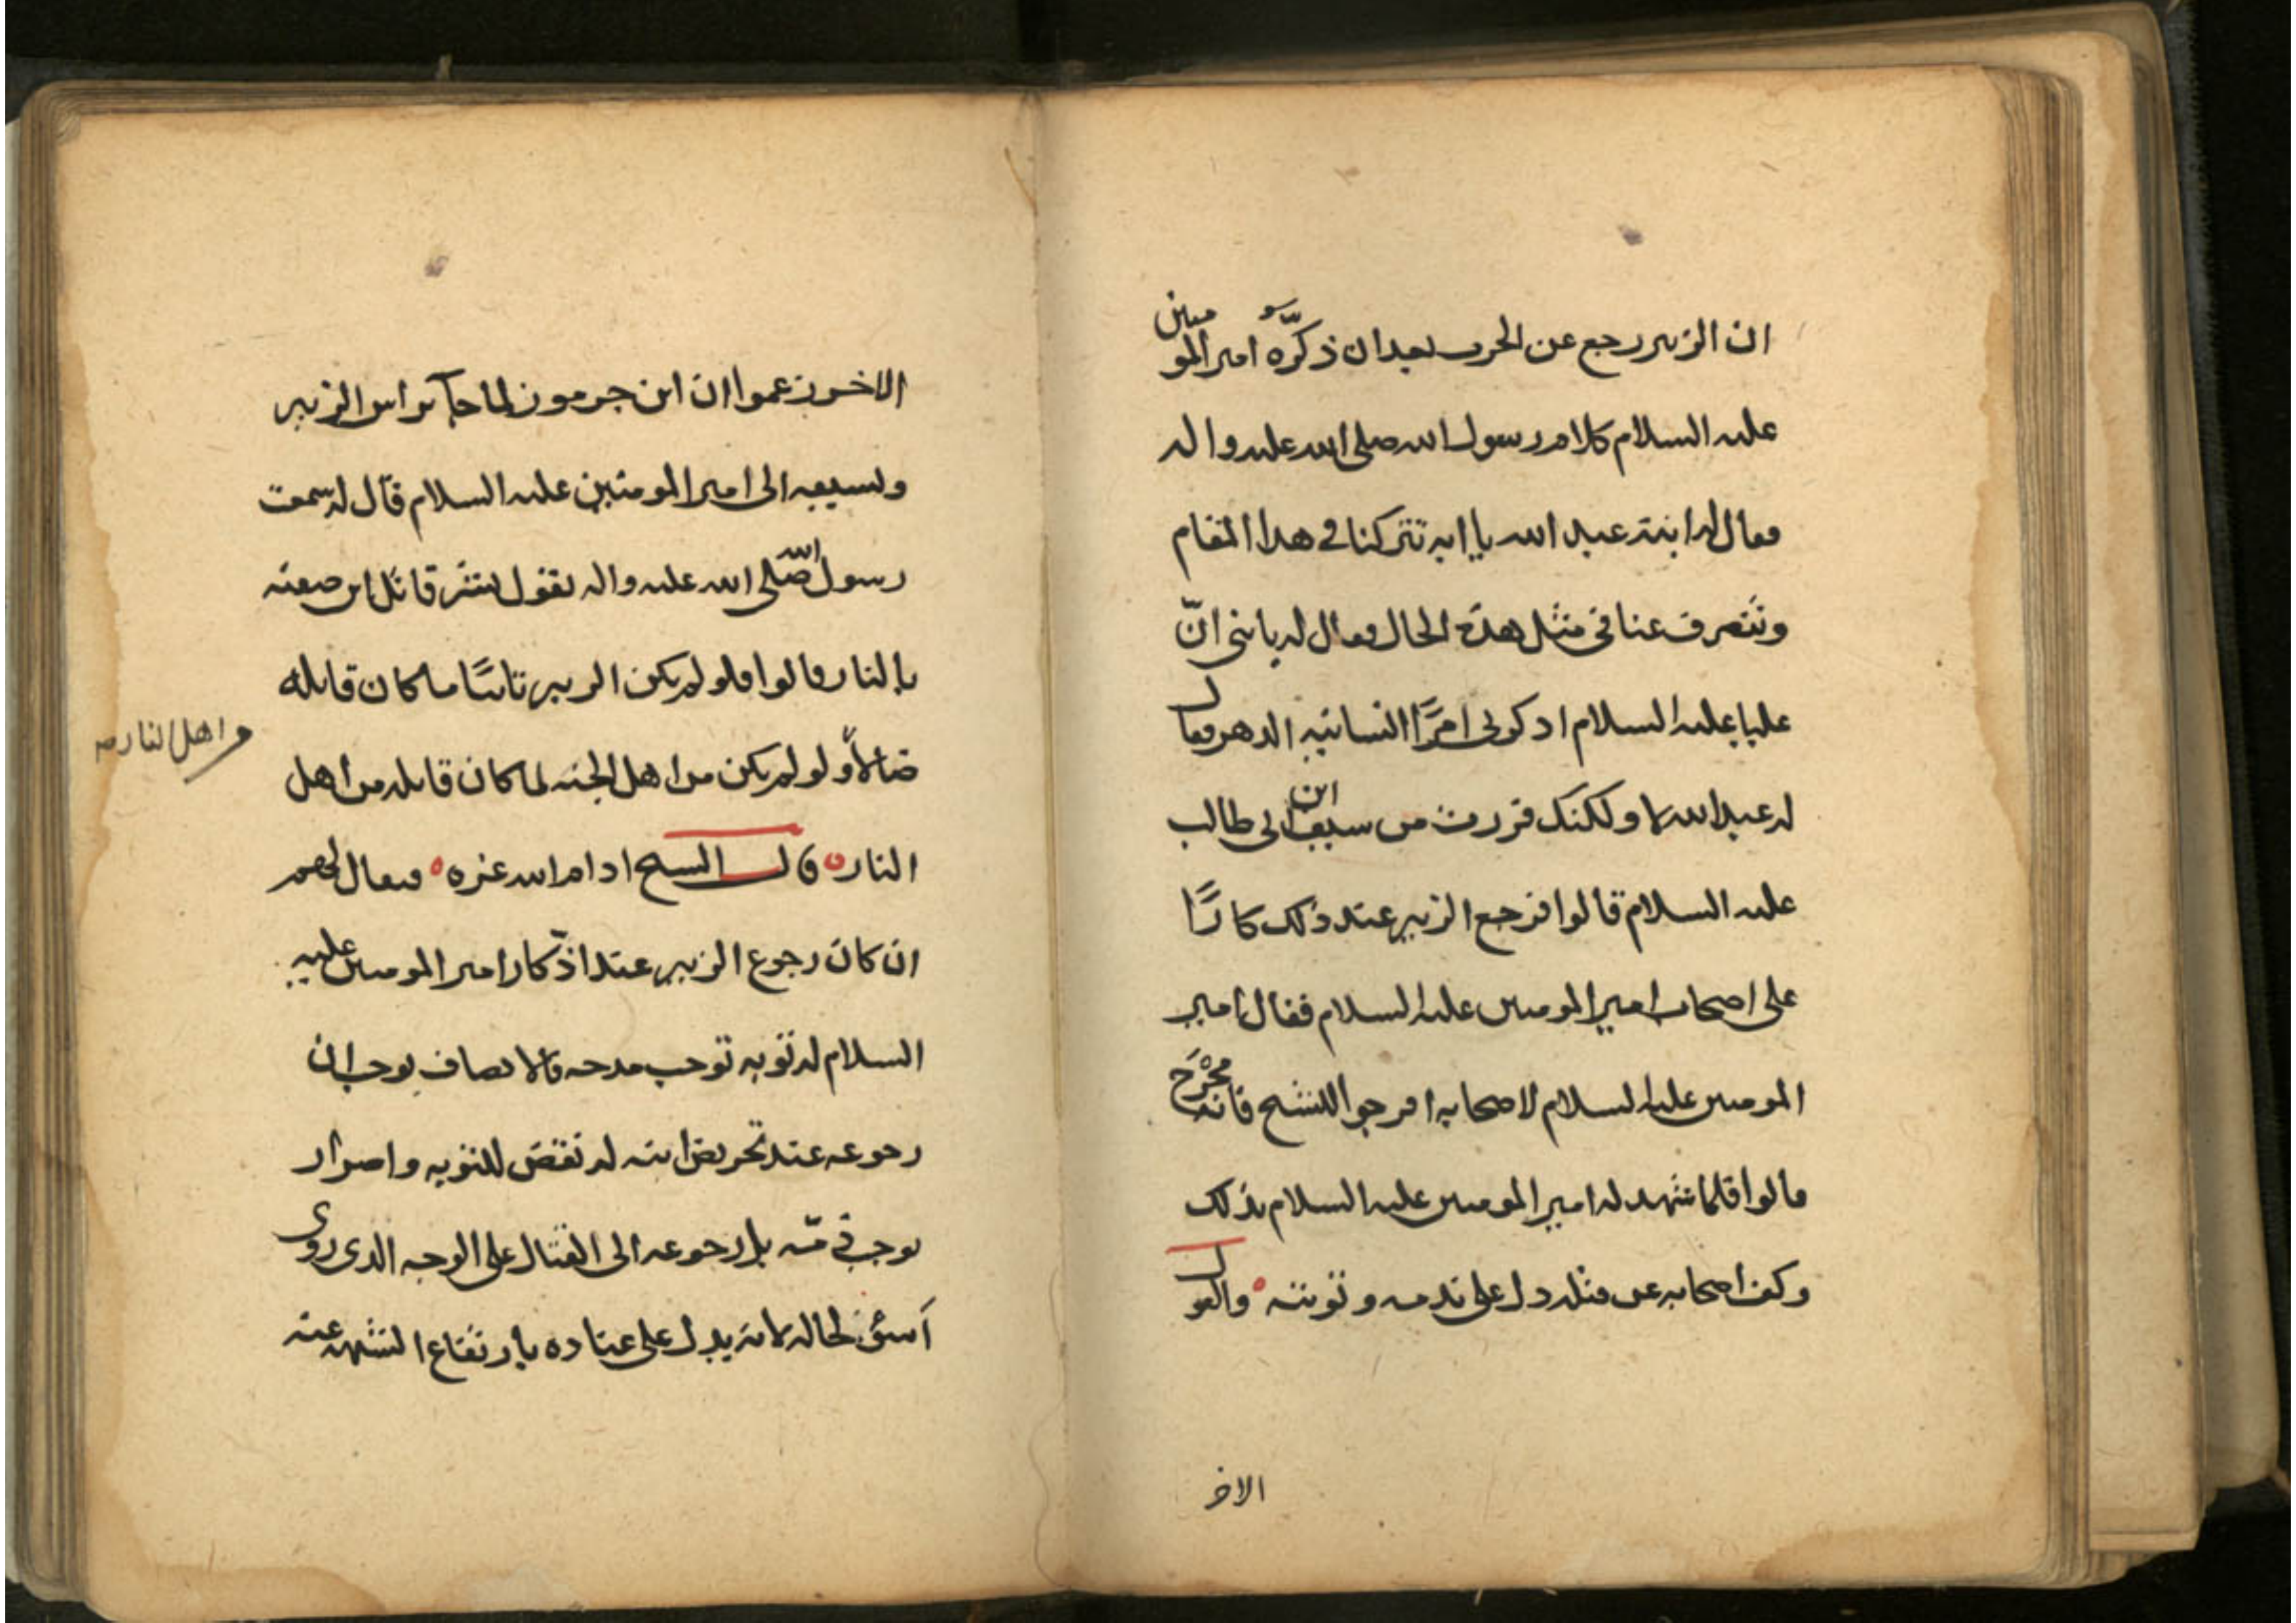 ان الزبير رجع عن الحرب بعد ان ذكّره امير المومنين
عليه السلام كلام رسول الله صلى الله عليه واله
فقال له ابنه عبد الله يا ابه تتركنا في هذا المقام
وتنصرف عنا في مثل هذه الحال فقال له يا بني انّ
عليا عليه السلام اذكرني امرًا انسانيه الدهر فقال
له عبد الله لا ولكنك فررت من سيف ابن ابي طالب
عليه السلام قالوا فرجع الزبير عند ذلك كارًّا
على اصحاب امير المومنين عليه السلام فقال امير
المومنين عليه السلام لاصحابه افرجوا للشيخ فانه محرج
قالوا فلما شهد له امير المومنين عليه السلام بذلك
وكف اصحابه عن قتله دل على ندمه وتوبته ° والقول
الاخر
الاخر زعموا ان ابن جرموز لما جآ براس الزبير
وبسيفه الى امير المومنين عليه السلام قال له سمعت
رسول الله صلى الله عليه واله يقول بشر قاتل ابن صفية
بالنار قالوا فلو لم يكن الزبير تائبًا ما كان قاتله
ضالاً ولو لم يكن من اهل الجنه لما كان قاتله من اهل
من اهل النار
النار ° قال الشيخ ادام الله عزه ° فيقال لهم
ان كان رجوع الزبير عند اذكار امير المومنين عليه
السلام له توبه توجب مدحه فالانصاف يوجب ان
رجوعه عند تحريض ابنه له نقض للتوبه واصرار
يوجب ذمّه بل رجوعه الى القتال على الوجه الذي روى
أسوء لحاله لانه يدل على عناده بارتفاع الشبهه عنه